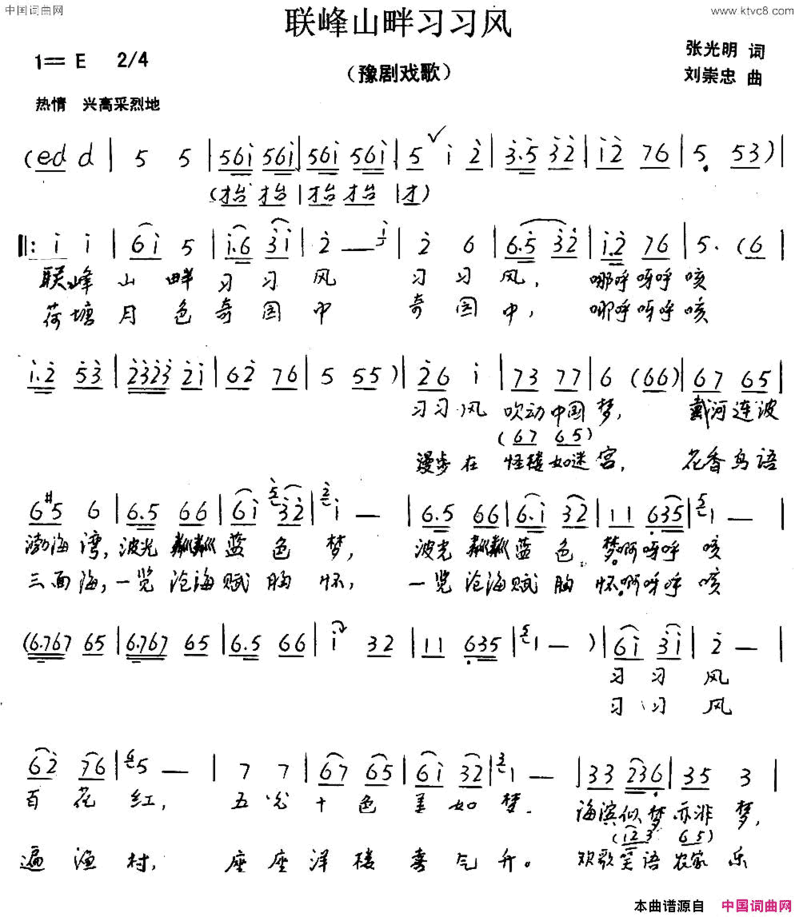 中国词曲网
www.ktvc8.com
联峰山畔习习风
1= E 2/4
(豫剧戏歌)
张光明 词
刘崇忠 曲
热情 兴高采烈地
(ed d | 5 5 | 56i 56i | 56i 56i | 5 i 2 | 3.5 32 | i2 76 | 5. 53) |
(抬 才抬 | 抬 才抬 | 才)
‖: i i | 6i 5 | i.6 3i | 2 — | 2 6 | 6.5 32 | i.2 76 | 5. (6
联峰山畔习习风 习习风, 哪呼呀呼咳
荷塘月色奇园中 奇园中, 哪呼呀呼咳
i.2 53 | 2323 2i | 62 76 | 5 55) | 26 i | 73 77 | 6 (66) | 67 65 |
习习风 吹动中国梦, 戴河连波
(67 65)
漫步在 怪楼如迷宫, 花香鸟语
6#5 6 | 6.5 66 | 6i 32 | i — | 6.5 66 | 6.i 32 | 11 635 | 1 — |
渤海湾, 波光粼粼蓝色梦, 波光粼粼蓝色梦啊呀呼咳
三面海, 一览沧海赋胸怀, 一览沧海赋胸怀啊呀呼咳
(6.767 65 | 6.767 65 | 6.5 66 | i 32 | 11 635 | 1 — ) | 6i 3i | 2 — |
习习风
习习风
62 76 | 5 — | 7 7 | 67 65 | 6i 32 | i — | 33 236 | 35 3 |
百花红, 五光十色美如梦. 海滨似梦亦非梦,
(123 65)
遍渔村, 座座洋楼喜气升。 欢歌笑语农家乐
本曲谱源自 中国词曲网